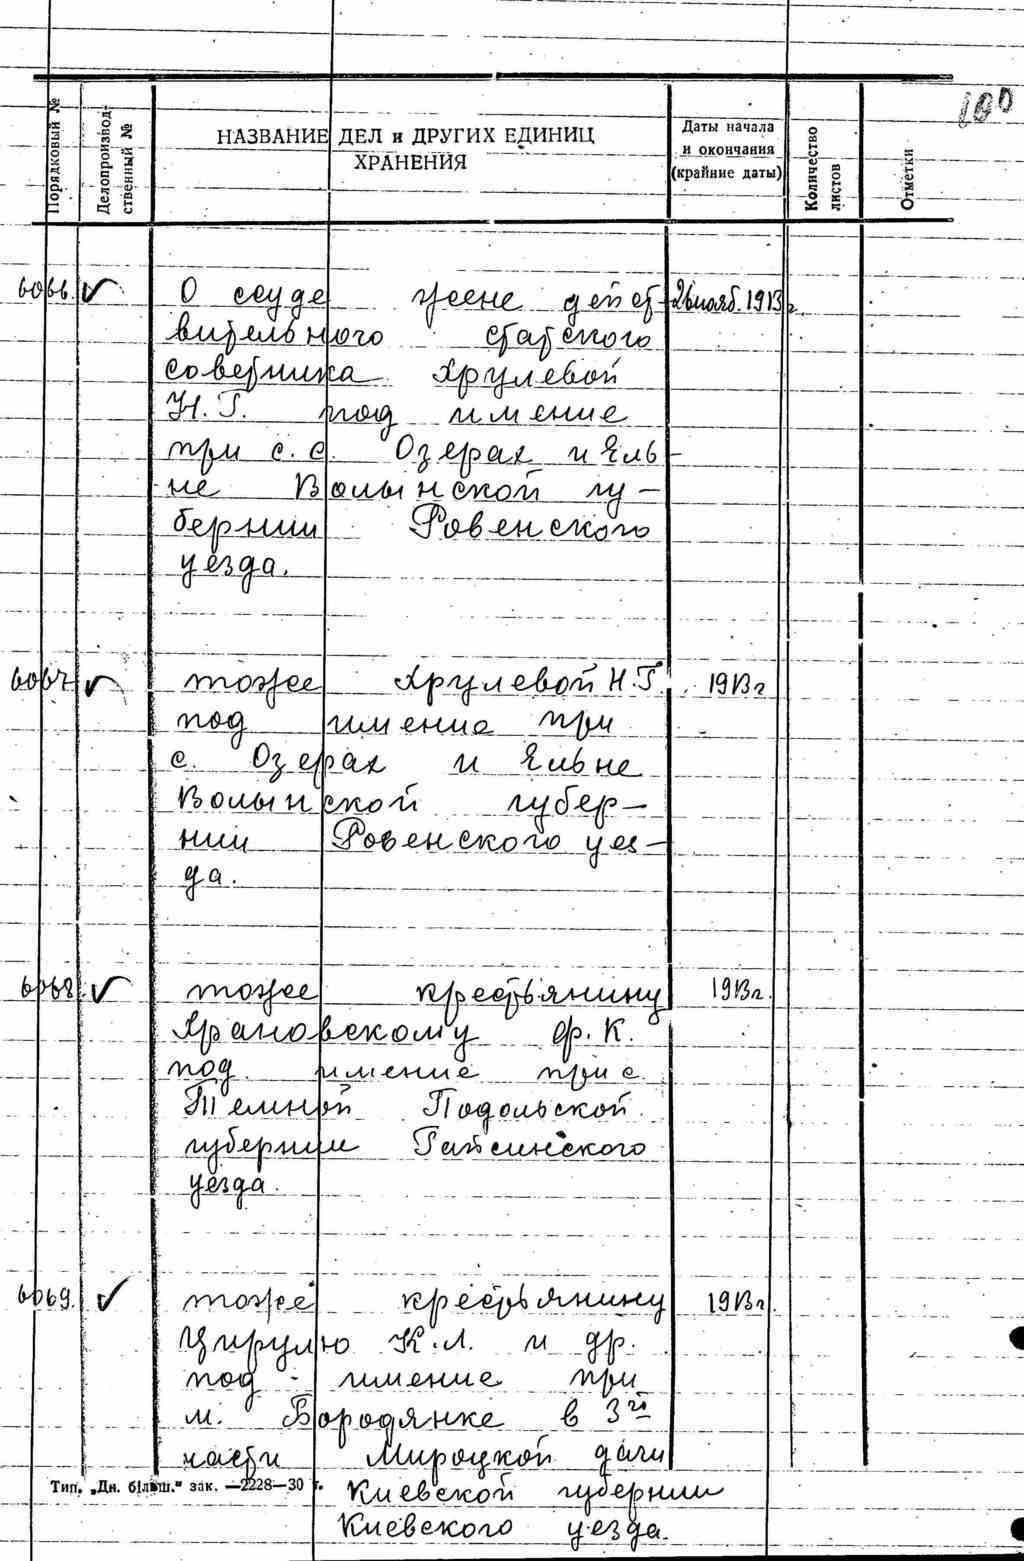 100
Порядковый №
Делопроизвод-
ственный №
НАЗВАНИЕ ДЕЛ и ДРУГИХ ЕДИНИЦ
ХРАНЕНИЯ
Даты начала
и окончания
(крайние даты)
Количество
листов
Отметки
6066. ✓ О ссуде жене дейст- 26 нояб. 1913 г.
вительного статского
советника Хрулевой
Н.Г. под имение
при с.с. Озерах и Ель-
не Волынской гу-
бернии Ровенского
уезда.
6067 ✓ тоже Хрулевой Н.Г. 1913 г
под имение при
с. Озерах и Ельне
Волынской губер-
нии Ровенского уез-
да.
6068. ✓ тоже крестьянину 1913 г.
Храновскому Ф.К.
под имение при с.
Темной Подольской
губернии Гайсинского
уезда.
6069. ✓ тоже крестьянину 1913 г.
Цирулю К.Л. и др.
под имение при
м. Бородянке в 3й
части Мироцкой дачи
Киевской губернии
Киевского уезда.
Тип. „Дн. більш." зак. —2228—30 г.